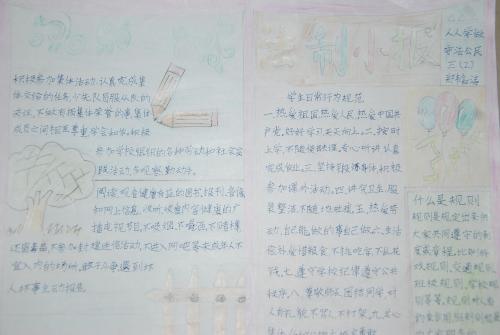 积极参加集体活动,认真完成集
体交给的任务,少先队员服从队的
决议,不做有损集体荣誉的事,集体
成员之间相互尊重,学会和,积极
参加学校组织的各种劳动和社会实
践活动,多观察,勤动手。
阅读,观看健康有益的图书报刊,音像
和网上信息,收听,收看内容健康的广
播电视节目,不吸烟,不喝酒,不赌博
还循毒品,不参加封建迷信活动,不进入网吧等未成年人不
宜入内的场所,敢于斗争遇到坏
人坏事主动报告
法制小报
人人学做
守法公民
三(2)
学生日常行为规范
一、热爱祖国,热爱人民,热爱中国共
产党,好好学习天天向上。二、按时
上学,不随便缺课,专心听讲,认真
完成作业。三、坚持锻炼身体,积极
参加课外活动。四、讲究卫生,服
装整洁,不随地吐痰。五、热爱劳
动,自己能做的事自己做。六、生活
俭朴,爱惜粮食,不挑吃穿,不乱花
钱。七、遵守学校纪律,遵守公共
秩序。八、尊敬师长,团结同学,对
人有礼貌,不骂人,不打架。九、关心
什么是规则
规则是规定出来供
大家共同遵守的制
度或章程,比如:游
戏规则,交通规则,
班级规则,学校规
则等等,